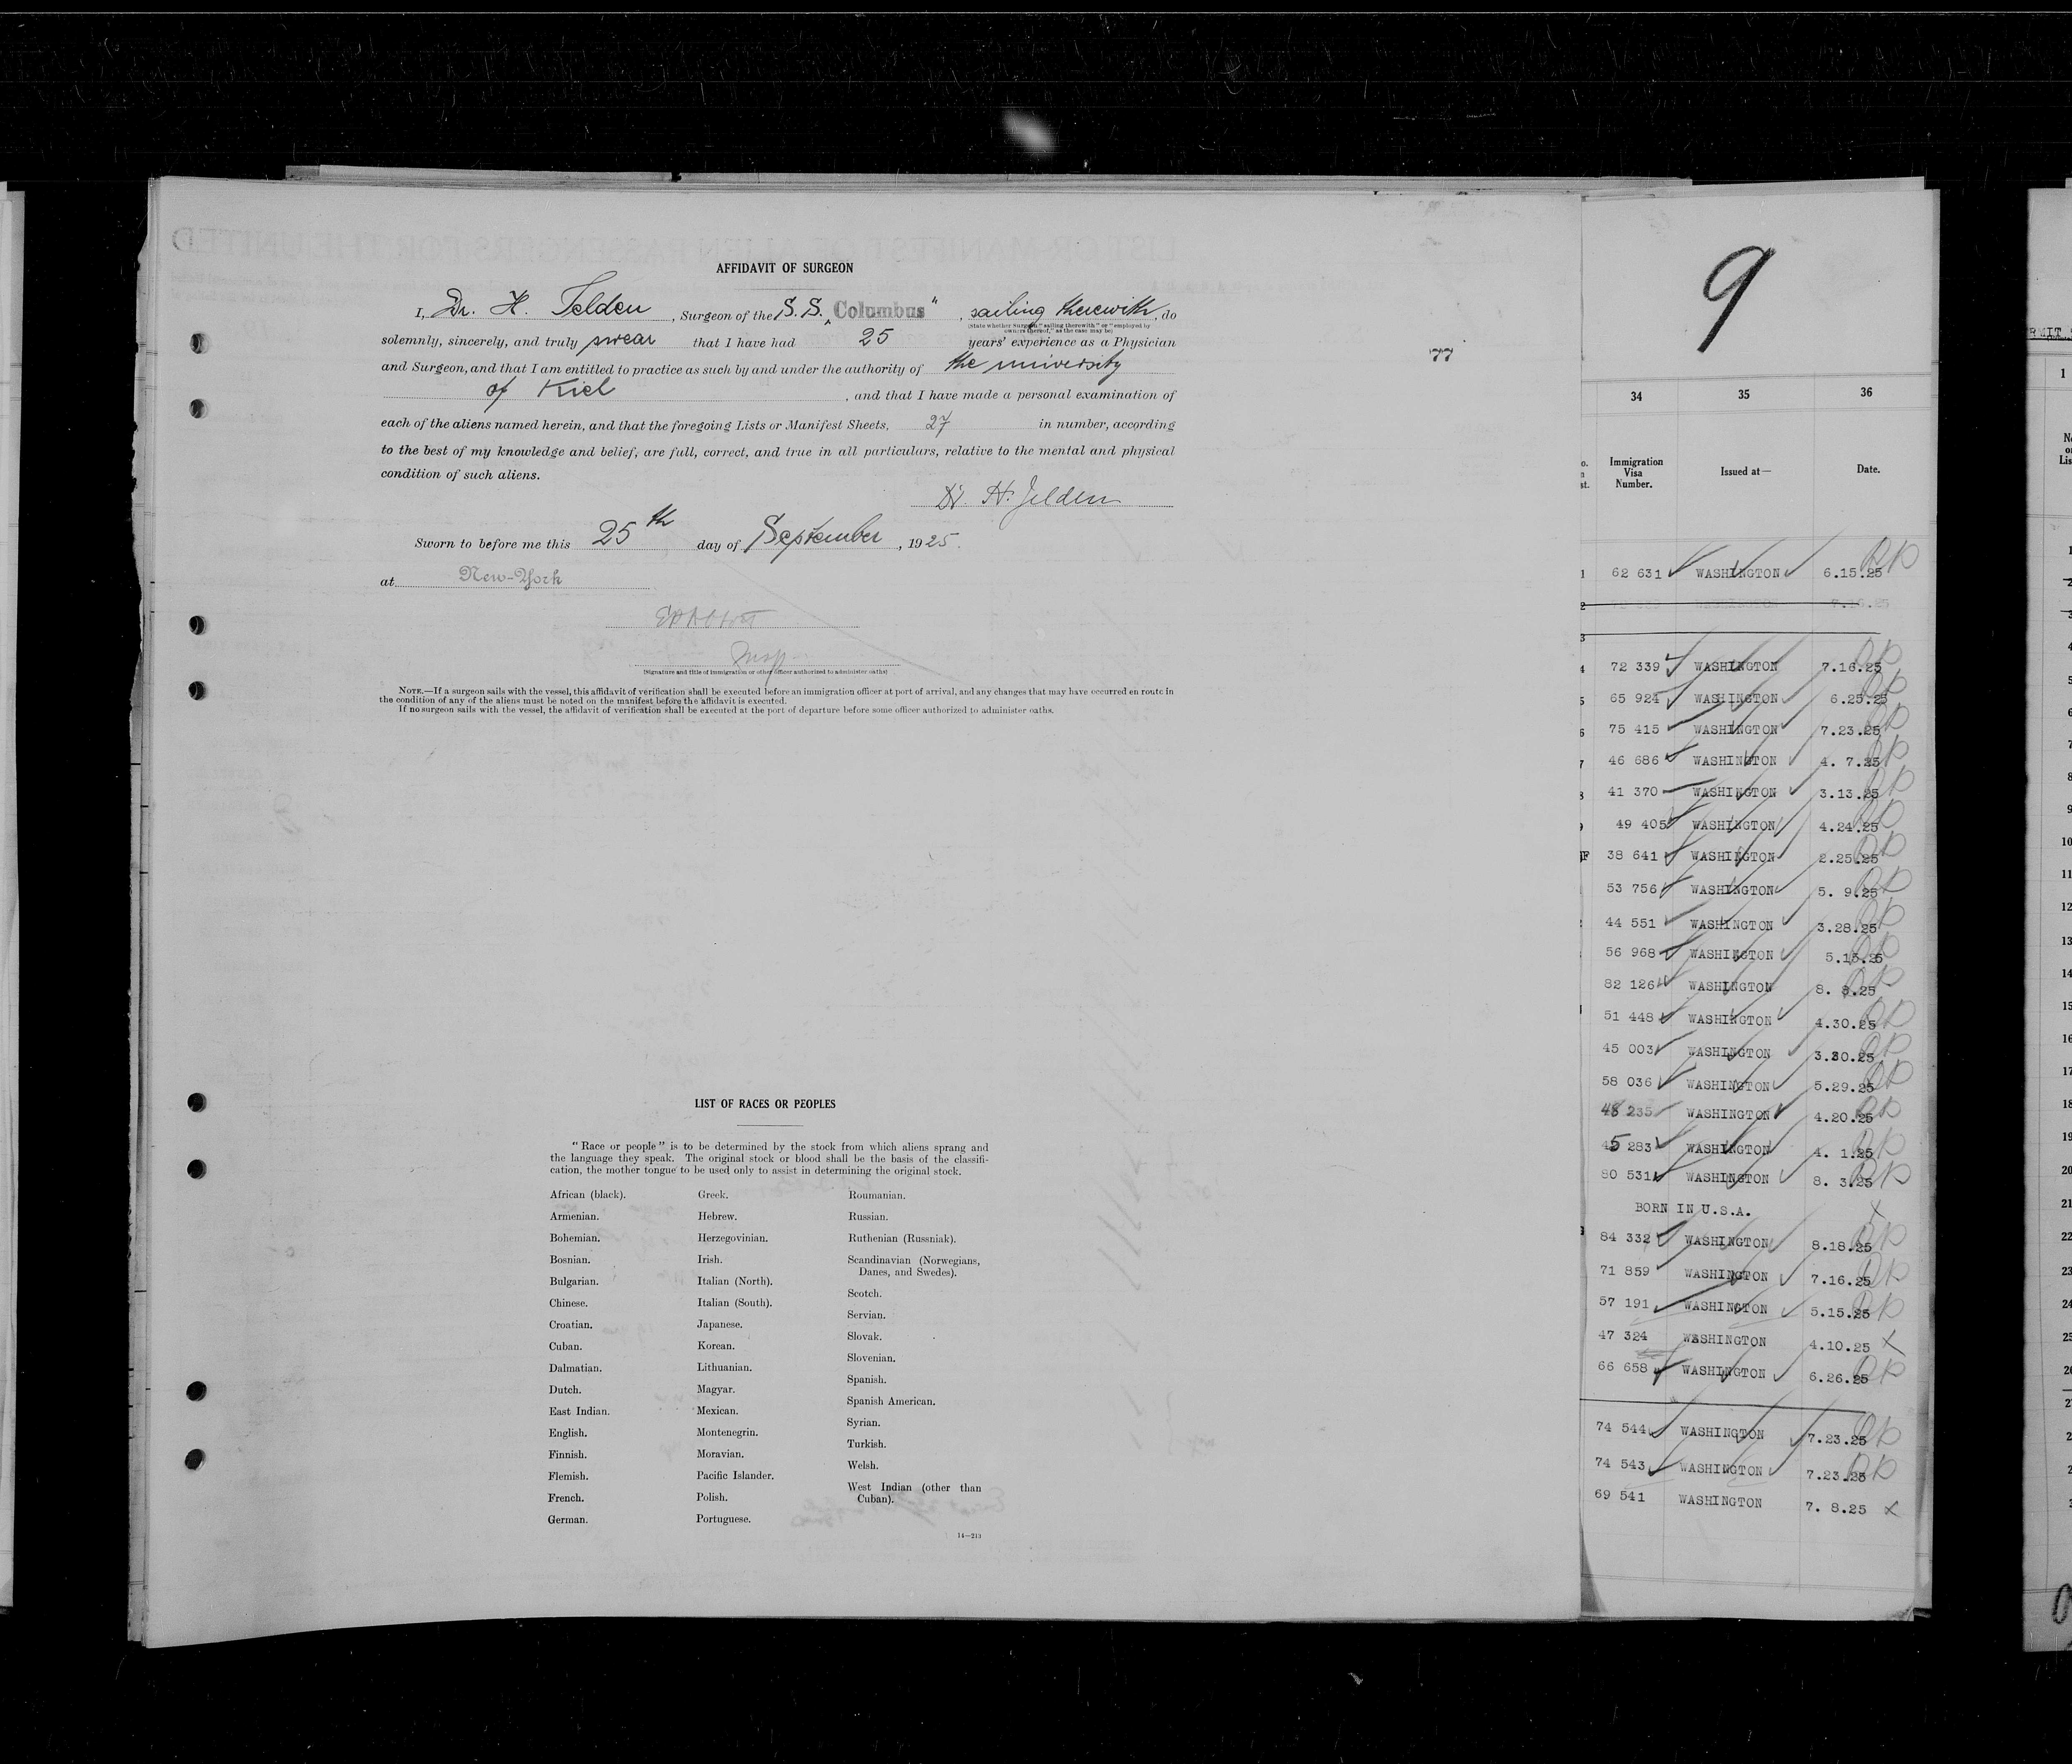 AFFIDAVIT OF SURGEON
I, Dr. H. Jelden, Surgeon of the S.S. "Columbus", sailing therewith, do
(State whether Surgeon "sailing therewith" or "employed by
owners thereof," as the case may be)
solemnly, sincerely, and truly swear that I have had 25 years' experience as a Physician
and Surgeon, and that I am entitled to practice as such by and under the authority of the university
of Kiel, and that I have made a personal examination of
each of the aliens named herein, and that the foregoing Lists or Manifest Sheets, 27 in number, according
to the best of my knowledge and belief, are full, correct, and true in all particulars, relative to the mental and physical
condition of such aliens.
Dr. H. Jelden
Sworn to before me this 25th day of September, 1925.
at New-York
Insp.
(Signature and title of immigration or other officer authorized to administer oaths)
NOTE.—If a surgeon sails with the vessel, this affidavit of verification shall be executed before an immigration officer at port of arrival, and any changes that may have occurred en route in
the condition of any of the aliens must be noted on the manifest before the affidavit is executed.
If no surgeon sails with the vessel, the affidavit of verification shall be executed at the port of departure before some officer authorized to administer oaths.
77
LIST OF RACES OR PEOPLES
"Race or people" is to be determined by the stock from which aliens sprang and
the language they speak. The original stock or blood shall be the basis of the classifi-
cation, the mother tongue to be used only to assist in determining the original stock.
African (black).
Armenian.
Bohemian.
Bosnian.
Bulgarian.
Chinese.
Croatian.
Cuban.
Dalmatian.
Dutch.
East Indian.
English.
Finnish.
Flemish.
French.
German.
Greek.
Hebrew.
Herzegovinian.
Irish.
Italian (North).
Italian (South).
Japanese.
Korean.
Lithuanian.
Magyar.
Mexican.
Montenegrin.
Moravian.
Pacific Islander.
Polish.
Portuguese.
Roumanian.
Russian.
Ruthenian (Russniak).
Scandinavian (Norwegians,
Danes, and Swedes).
Scotch.
Servian.
Slovak.
Slovenian.
Spanish.
Spanish American.
Syrian.
Turkish.
Welsh.
West Indian (other than
Cuban).
14—213
9
34 35 36
Immigration
Visa
Number.
Issued at—
Date.
62 631 WASHINGTON 6.15.25
72 339 WASHINGTON 7.16.25
65 924 WASHINGTON 6.25.25
75 415 WASHINGTON 7.23.25
46 686 WASHINGTON 4. 7.25
41 370 WASHINGTON 3.13.25
49 405 WASHINGTON 4.24.25
38 641 WASHINGTON 2.25.25
53 756 WASHINGTON 5. 9.25
44 551 WASHINGTON 3.28.25
56 968 WASHINGTON 5.15.25
82 126 WASHINGTON 8. 8.25
51 448 WASHINGTON 4.30.25
45 003 WASHINGTON 3.30.25
58 036 WASHINGTON 5.29.25
48 235 WASHINGTON 4.20.25
45 283 WASHINGTON 4. 1.25
80 531 WASHINGTON 8. 3.25
BORN IN U.S.A.
84 332 WASHINGTON 8.18.25
71 859 WASHINGTON 7.16.25
57 191 WASHINGTON 5.15.25
47 324 WASHINGTON 4.10.25
66 658 WASHINGTON 6.26.25
74 544 WASHINGTON 7.23.25
74 543 WASHINGTON 7.23.25
69 541 WASHINGTON 7. 8.25